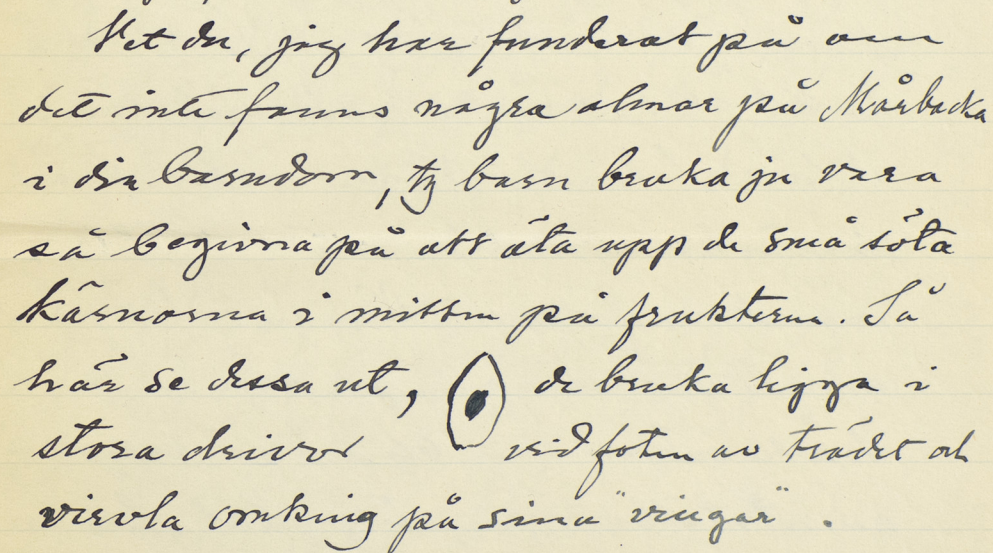 Vet du, jag har funderat på om
det inte fanns några almar på Mårbacka
i din barndom, ty barn bruka ju vara
så begivna på att äta upp de små söta
kärnorna i mitten på frukterna. Så
här se dessa ut, de bruka ligga i
stora drivor vid foten av trädet och
virvla omkring på sina "vingar".